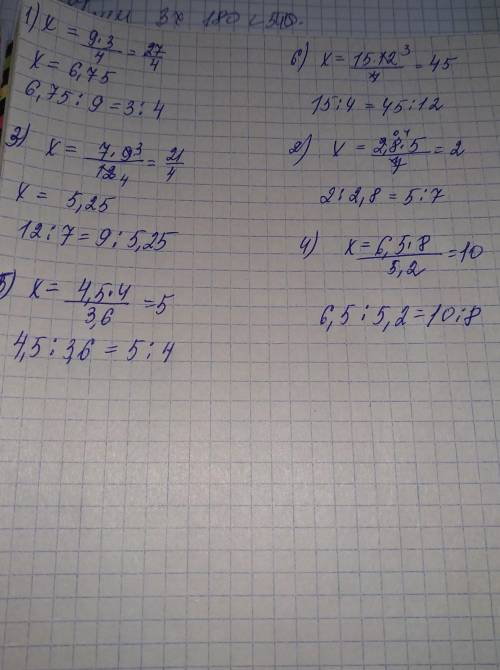 3x 180 < 540.
1) x = 9·3/4 = 27/4
x = 6,75
6,75 : 9 = 3 : 4
3) x = 7·9³/12₄ = 21/4
x = 5,25
12 : 7 = 9 : 5,25
5) x = 4,5·4/3,6 = 5
4,5 : 3,6 = 5 : 4
6) x = 15·12³/4 = 45
15 : 4 = 45 : 12
2) x = 2,8·5/7 = 2
2 : 2,8 = 5 : 7
4) x = 6,5·8/5,2 = 10
6,5 : 5,2 = 10 : 8